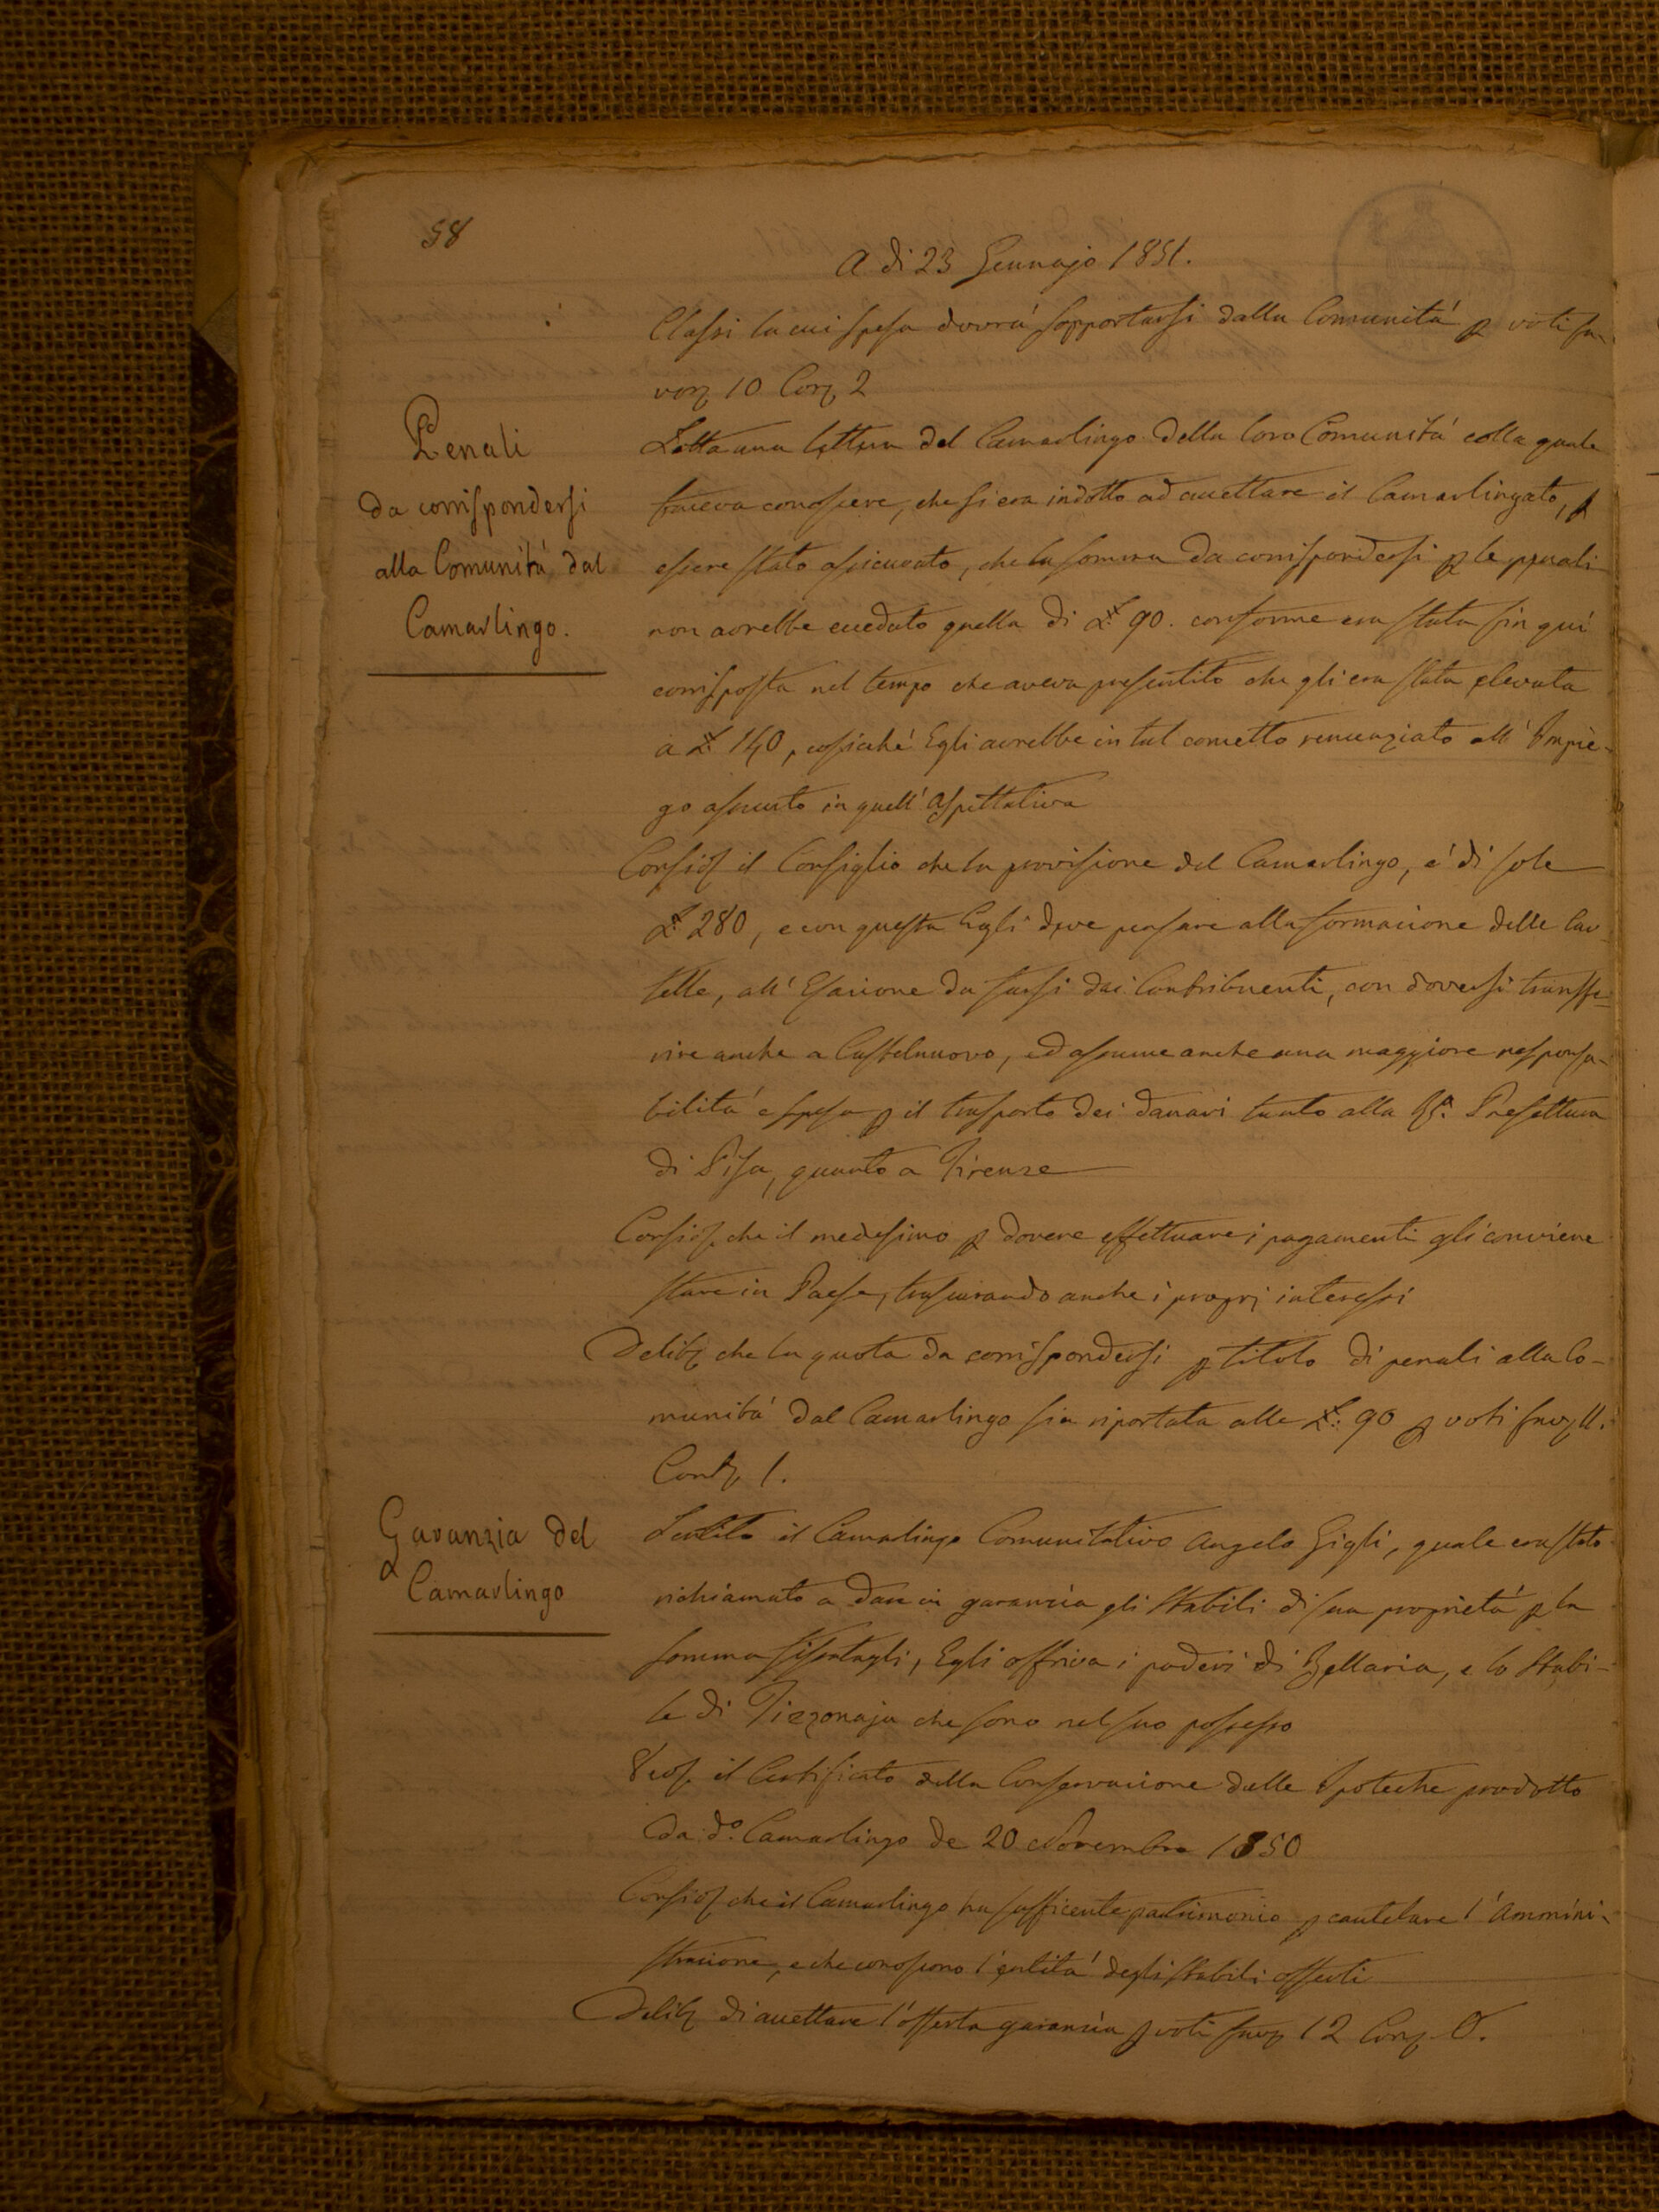 58
A dì 23 Gennajo 1851.
Classi la cui spesa dovrà sopportarsi dalla Comunità p voti fa-
vor 10 Con 2
Penali
da corrispondersi
alla Comunità dal
Camarlingo.
Letta una lettera del Camarlingo della loro Comunità colla quale
faceva conoscere, che si era indotto ad accettare il Camarlingato, p
essere stato assicurato, che la somma da corrispondersi p le penali
non avrebbe ecceduto quella di £ 90. conforme era stata fin quì
corrisposta nel tempo che aveva presentito che gli era stata elevata
a £ 140, cosicché Egli avrebbe in tal concetto renunziato all' Impie-
go assunto in quell' aspettativa
Consid il Consiglio che la provisione del Camarlingo, é di sole
£ 280, e con questa Egli deve pensare alla formazione delle Car-
telle, all' Esazione da farsi dai Contribuenti, con doversi transfe-
rire anche a Castelnuovo, ed assume anche una maggiore responsa-
bilità e spesa p il trasporto dei danari tanto alla Prefettura
di Pisa, quanto a Firenze
Consid che il medesimo p dovere effettuare i pagamenti gli conviene
stare in Paese, trascurando anche i proprj interessi
Delib che la quota da corrispondersi p titolo di penali alla Co-
munità dal Camarlingo sia riportata alle £ 90 p voti fav 11.
Cont 1.
Garanzia del
Camarlingo
Sentito il Camarlingo Comunitativo Angelo Gigli, quale era stato
richiamato a dare in garanzia gli Stabili di sua proprietà p la
somma fissatagli, Egli offriva i poderi di Bellaria, e lo Stabi-
le di Tizzonaja che sono nel suo possesso
Ved il Certificato della Conservazione delle Ipoteche prodotto
da do. Camarlingo de 20 Novembre 1850
Consid che il Camarlingo ha sufficente patrimonio p cautelare l' Ammini-
strazione, e che conoscono l' entità degli Stabili offerti
Delib di accettare l' offerta garanzia p voti fav 12 Con 0.